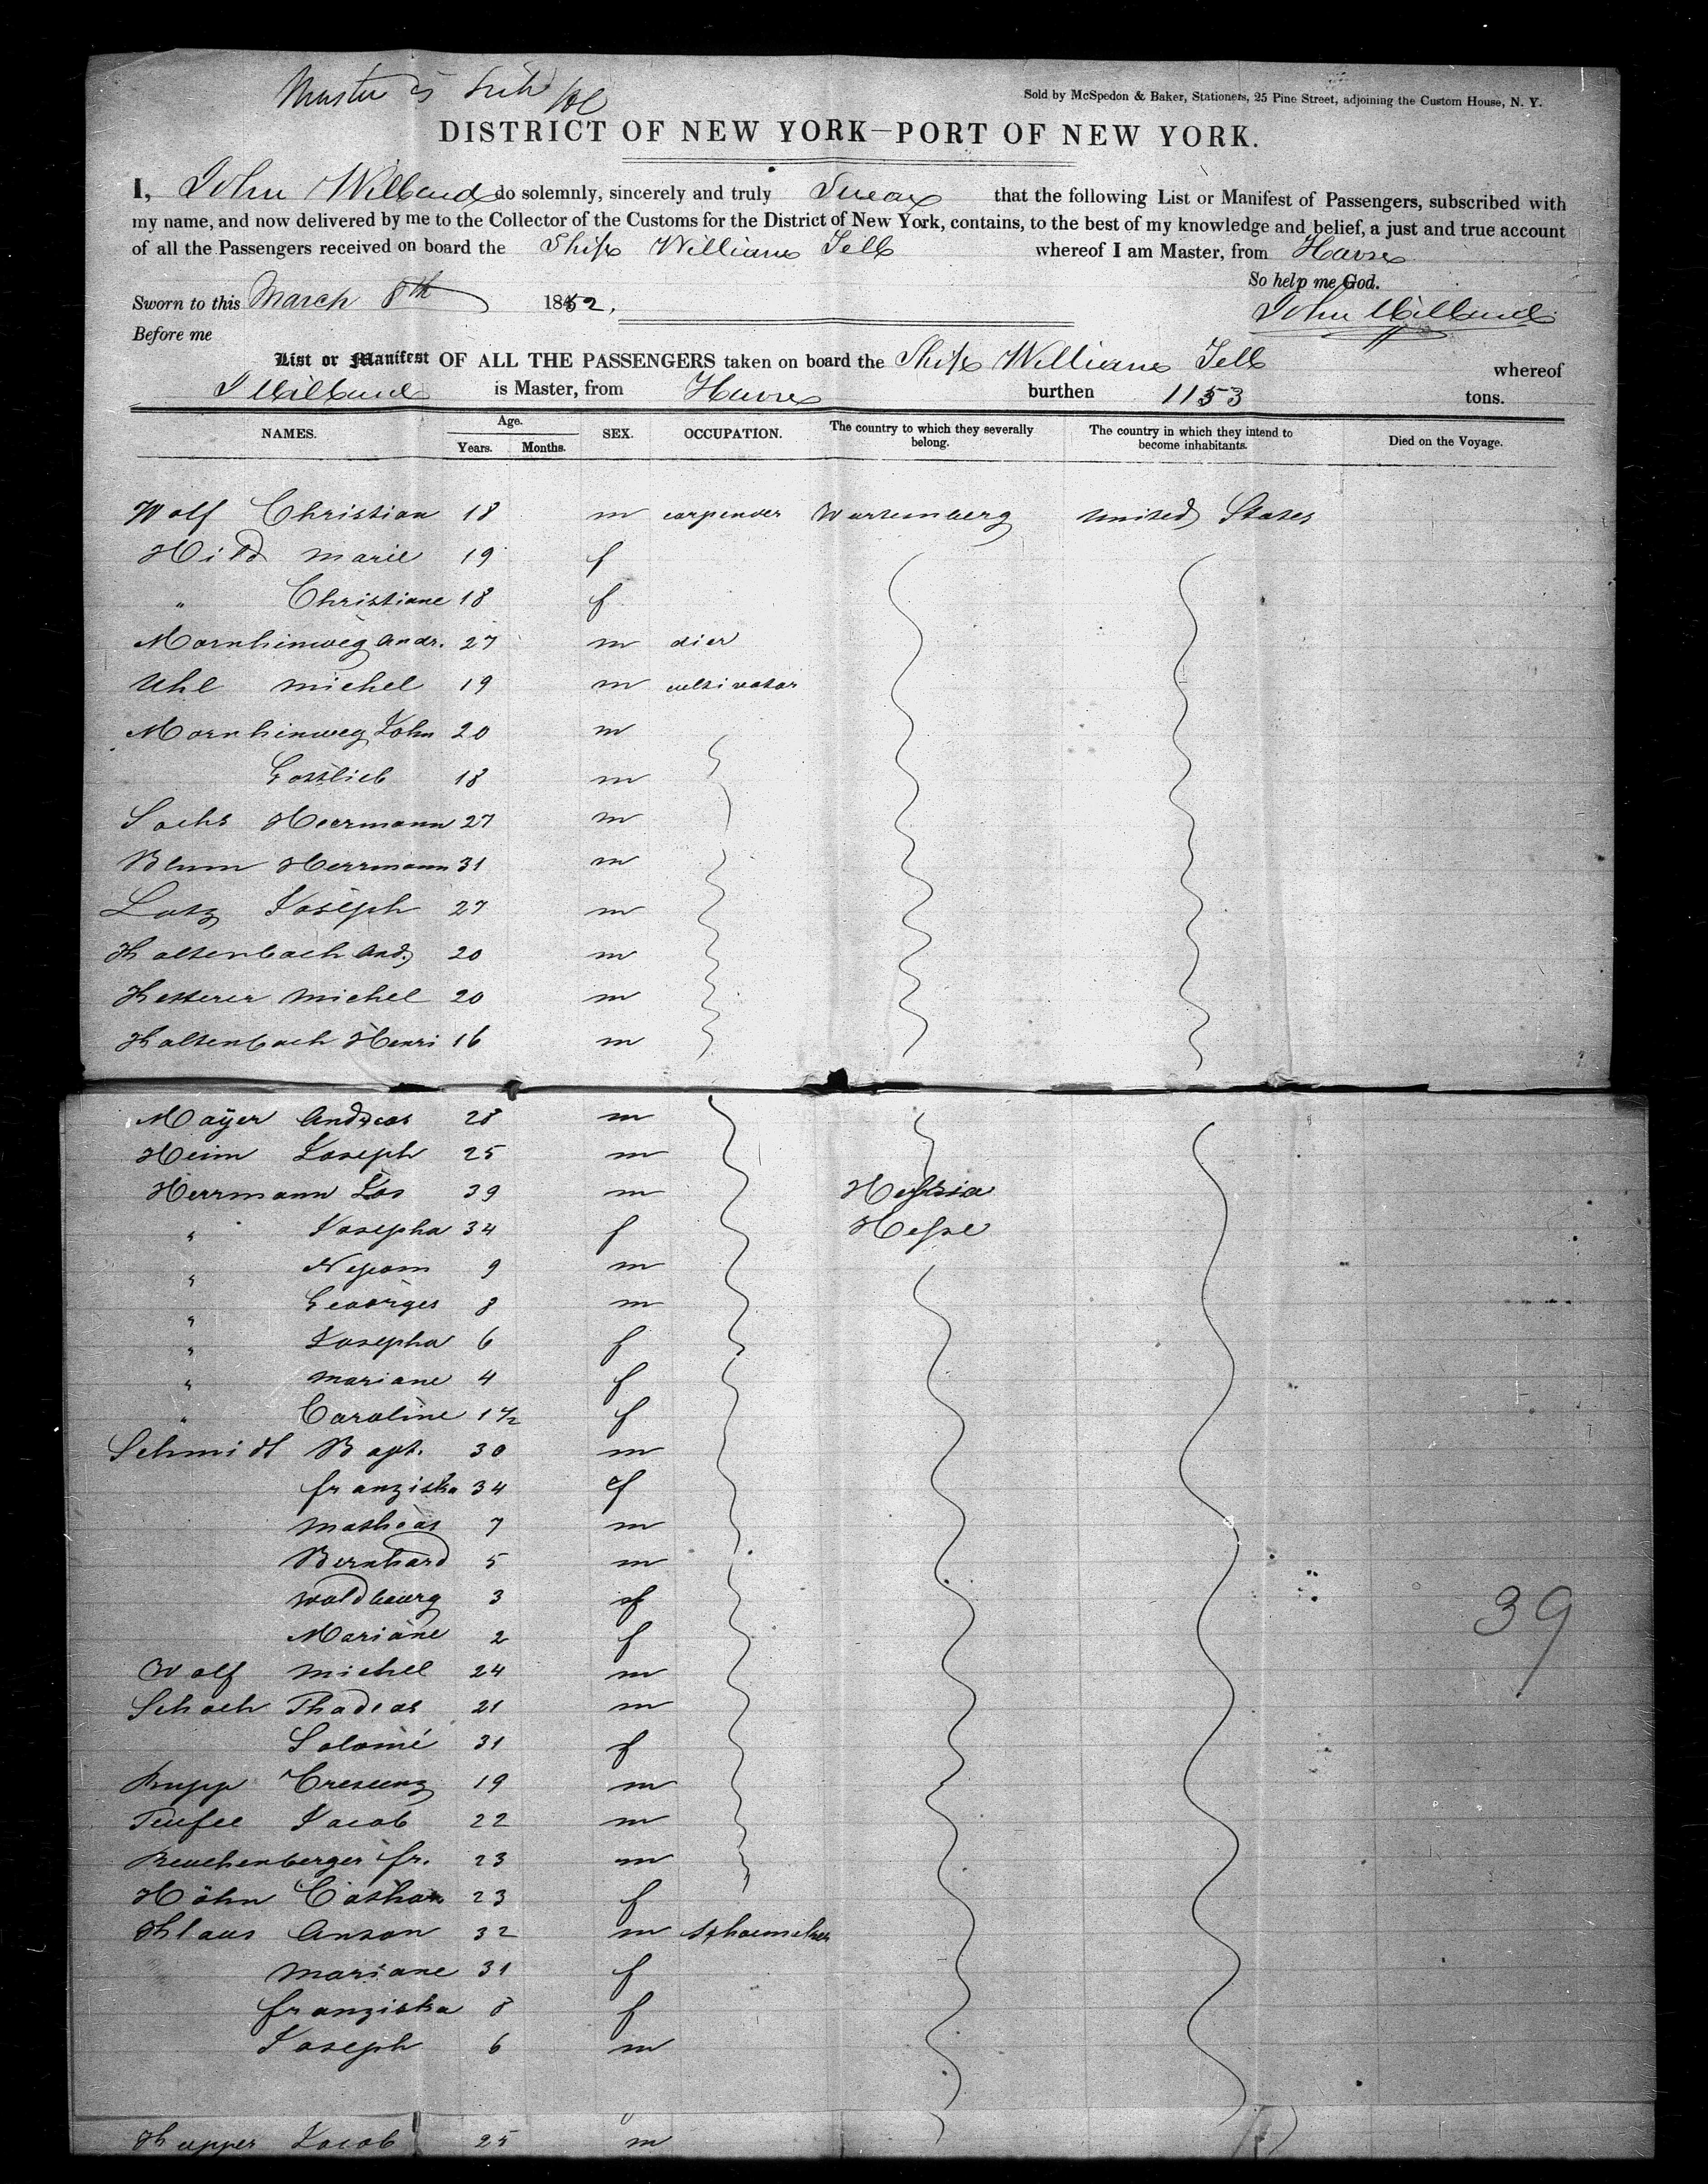 Sold by McSpedon & Baker, Stationers, 25 Pine Street, adjoining the Custom House, N. Y.
DISTRICT OF NEW YORK—PORT OF NEW YORK.
I, John Willard do solemnly, sincerely and truly Swear that the following List or Manifest of Passengers, subscribed with
my name, and now delivered by me to the Collector of the Customs for the District of New York, contains, to the best of my knowledge and belief, a just and true account
of all the Passengers received on board the Ship William Tell whereof I am Master, from Havre
So help me God.
Sworn to this March 8th 1852,
John Willard
Before me
List or Manifest OF ALL THE PASSENGERS taken on board the Ship William Tell whereof
J Willard is Master, from Havre burthen 1153 tons.
NAMES. Age. Years. Months. SEX. OCCUPATION. The country to which they severally belong. The country in which they intend to become inhabitants. Died on the Voyage.
Wolf Christian 18 m carpenter Wurtemberg United States
Hild Marie 19 f
" Christiane 18 f
Mornhinweg Andr. 27 m dier
Uhl Michel 19 m cultivator
Mornhinweg John 20 m
Gottlieb 18 m
Sachs Herrmann 27 m
Blum Herrmann 31 m
Lotz Joseph 27 m
Kaltenbach And. 20 m
Ketterer Michel 20 m
Kaltenbach Henri 16 m
Mayer Andreas 28 m
Heim Joseph 25 m
Herrmann Jos 39 m Hessia
" Josepha 34 f Hesse
" Nepom 9 m
" Georges 8 m
" Josepha 6 f
" Mariane 4 f
" Caroline 1 1/2 f
Schmidt Bapt. 30 m
Franziska 34 f
Mathias 7 m
Bernhard 5 m
Waldbourg 3 f
Mariane 2 f
39
Wolf Michel 24 m
Schoch Thadeas 21 m
Salomé 31 f
Rupp Crescenz 19 m
Teufel Jacob 22 m
Reuchenberger fr. 23 m
Höhn Cathar 23 f
Klaus Anton 32 m Schoemaker
Mariane 31 f
Franziska 8 f
Joseph 6 m
Kupper Jacob 25 m